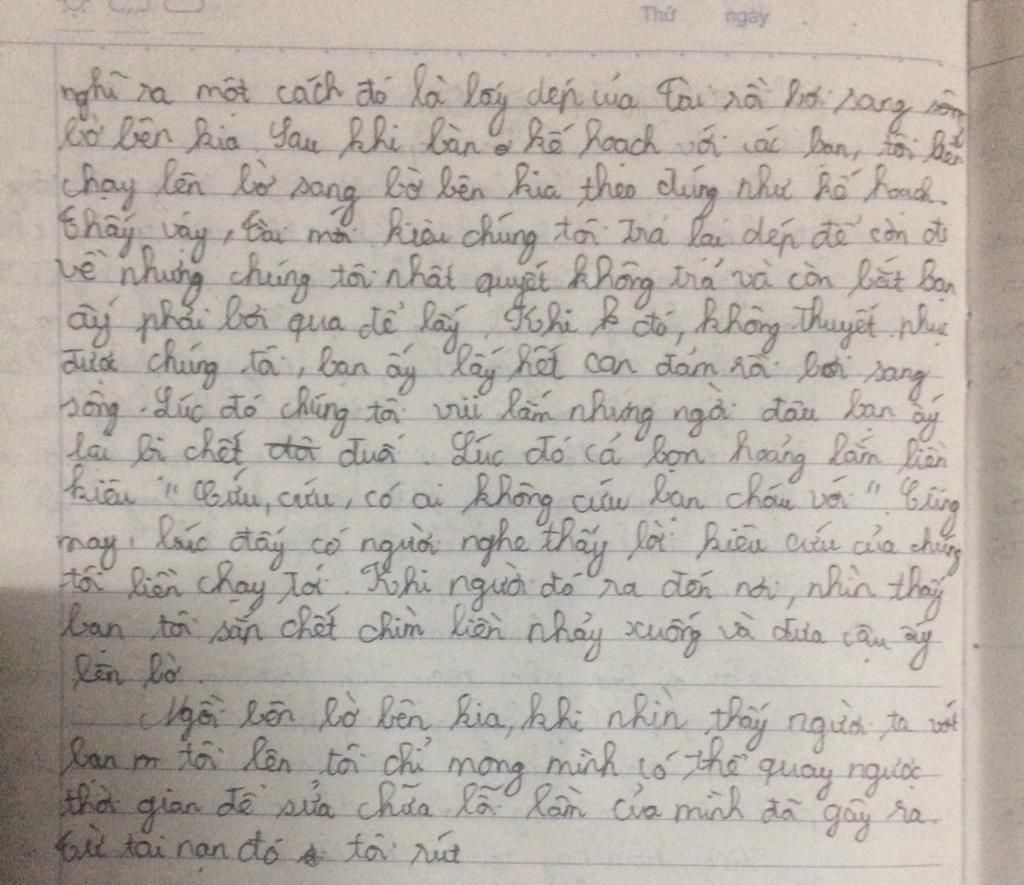 Thứ ngày
nghĩ ra một cách đó là lấy dép của Tài rồi bơi sang
bờ bên kia. Sau khi bàn kế hoạch với các bạn, tôi liền
chạy lên bờ sang bờ bên kia theo đúng như kế hoạch.
Thấy vậy, Tài mới kiêu chúng tôi trả lại dép để còn đi
về nhưng chúng tôi nhất quyết không trả và còn bắt bạn
ấy phải bơi qua để lấy. Khi đó, không thuyết phục
được chúng tôi, bạn ấy lấy hết can đảm rồi bơi sang
sông. Lúc đó chúng tôi vui lắm nhưng ngờ đâu bạn ấy
lại bị chết đuố. Lúc đó cả bọn hoảng lắm liền
kiêu "Cứu, cứu, có ai không cứu bạn cháu với". Cũng
may, lúc đấy có người nghe thấy lời kiêu cứu của chúng
tôi liền chạy tới. Khi người đó ra đến nơi, nhìn thấy
bạn tôi sắp chết chìm liền nhảy xuống và đưa cậu ấy
lên bờ.
Ngồi bên bờ bên kia, khi nhìn thấy người ta vớt
bạn tôi lên tôi chỉ mong mình có thể quay ngược
thời gian để sửa chữa lỗi lầm của mình đã gây ra.
Từ tai nạn đó tôi rút